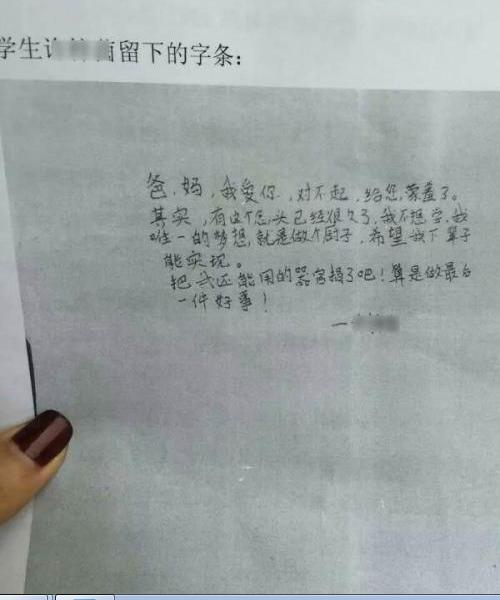 学生许 留下的字条：
爸，妈，我爱你，对不起，给您，蒙羞了。
其实，有这个念头已经很久了，我不想学，我
唯一的梦想，就是做个厨子，希望我下辈子
能实现。
把我还能用的器官捐了吧！算是做最后
一件好事！